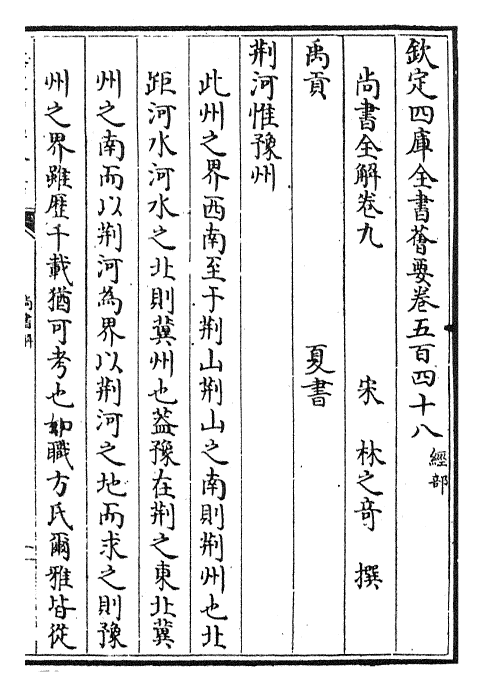 欽定四庫全書薈要卷五百四十八 經部
尚書全解卷九 宋 林之奇 撰
禹貢 夏書
荆河惟豫州
此州之界西南至于荆山荆山之南則荆州也北
距河水河水之北則冀州也葢豫在荆之東北冀
州之南而以荆河為界以荆河之地而求之則豫
州之界雖歴千載猶可考也如職方氏爾雅皆從
尚書解
一